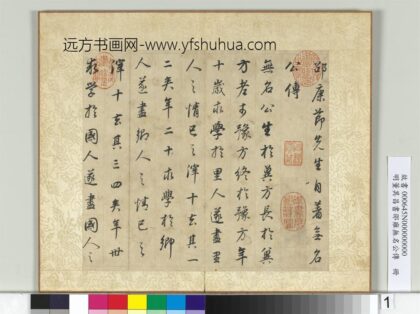 远方书画网-www.yfshuhua.com
邵康節先生自著無名
公傳
無名公生於冀方長於冀
方老於豫方終於豫方年
十歲求學於里人遂盡里
人之情己之滓十去其一
二矣年二十求學於鄉
人遂盡鄉人之情己之
滓十去其三四矣年卅
求學於國人遂盡國人之
故書 000645N000000000
明董其昌書邵雍無名公傳 冊
1